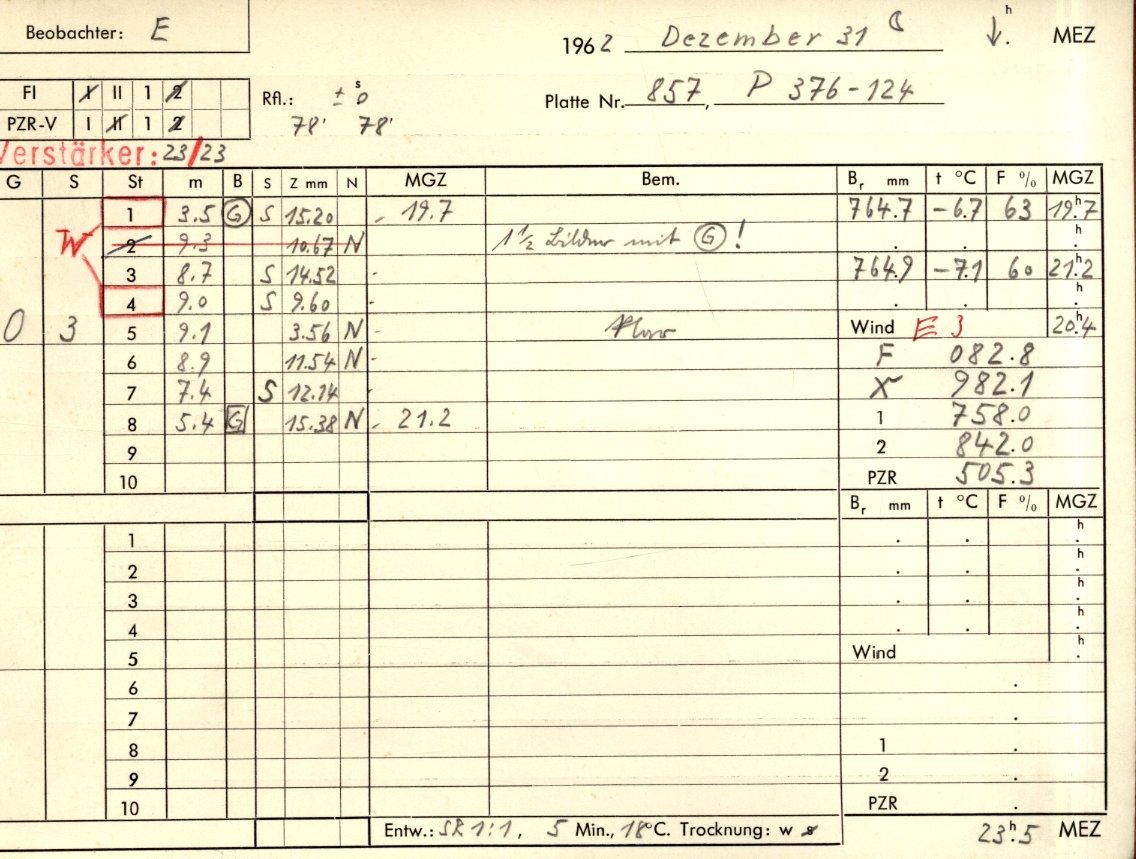 Beobachter: E
1962 Dezember 31 ↓ h . MEZ
FI I II 1 2
Rfl.: ± s 0
Platte Nr. 857, P 376-124
PZR-V I II 1 2
78' 78'
Verstärker: 23/23
G S St m B S Z mm N MGZ Bem. Br mm t °C F % MGZ
1 3.5 G S 15.20 - 19.7 764.7 -6.7 63 19h.7
W
2 9.3 10.67 N 1 1/2 Bilder mit G ! . . h.
3 8.7 S 14.52 - 764.9 -7.1 60 21h.2
4 9.0 S 9.60 - . . h.
0 3 5 9.1 3.56 N - Wind E 3 20h.4
6 8.9 11.54 N - F 082.8
7 7.4 S 12.14 - X 982.1
8 5.4 G 15.38 N - 21.2 1 758.0
9 2 842.0
10 PZR 505.3
Br mm t °C F % MGZ
1 . . h.
2 . . h.
3 . . h.
4 . . h.
5 Wind h.
6 .
7 .
8 1 .
9 2 .
10 PZR .
Entw.: SR 1:1, 5 Min., 18°C. Trocknung: w s 23h.5 MEZ